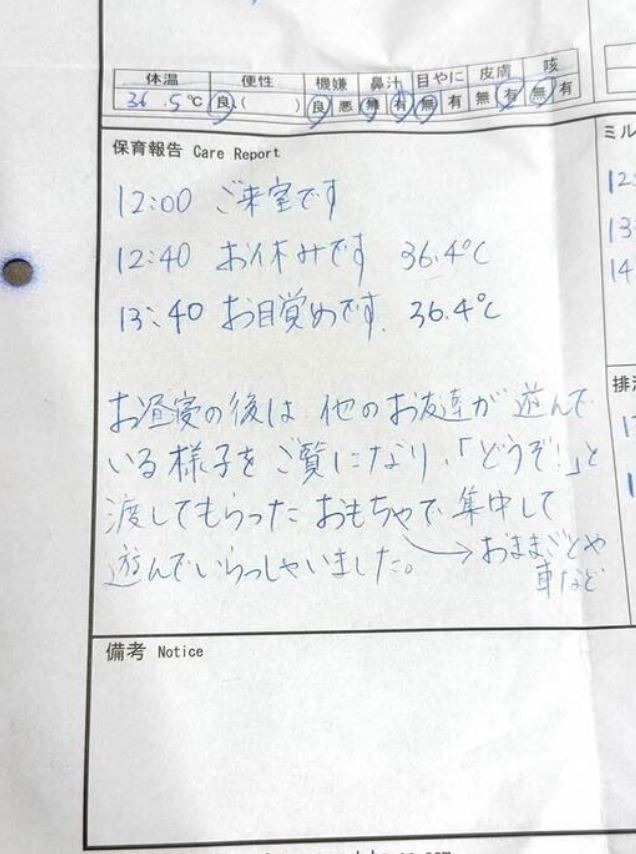 体温 便性 機嫌 鼻汁 目やに 皮膚 咳
36.5℃ 良・( ) 良 悪 無 有 無 有 無 有 無 有
保育報告 Care Report
12:00 ご来室です
12:40 お休みです 36.4℃
13:40 お目覚めです. 36.4℃
お昼寝の後は 他のお友達が 遊んで
いる様子をご覧になり、「どうぞ!」と
渡してもらったおもちゃで集中して
遊んでいらっしゃいました。→おままごとや
車など
備考 Notice
ミル
12:
13
14